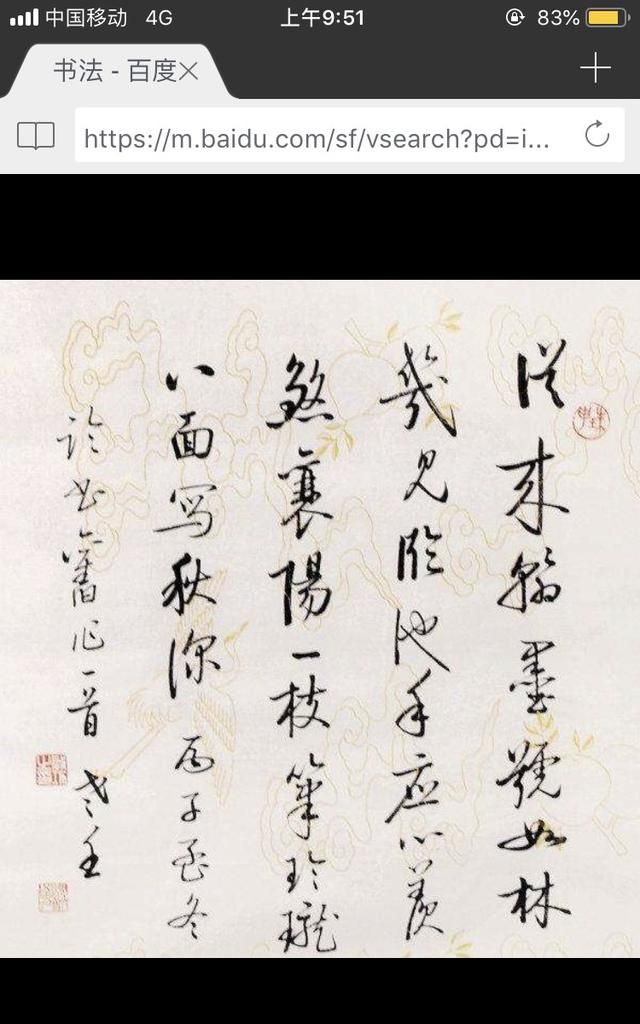 中国移动 4G 上午9:51 83%
书法 - 百度
https://m.baidu.com/sf/vsearch?pd=i...
從来翰墨號如林
幾見临池手应心羡
煞襄陽一枝筆玲瓏
八面写秋深 丙子孟冬
论书舊作一首